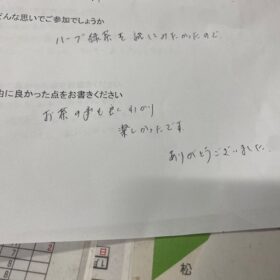 どんな思いでご参加でしょうか
ハーブ緑茶を試してみたかったので
由に良かった点をお書きください
お茶の事も良くわかり
楽しかったです
ありがとうございました。
松
日